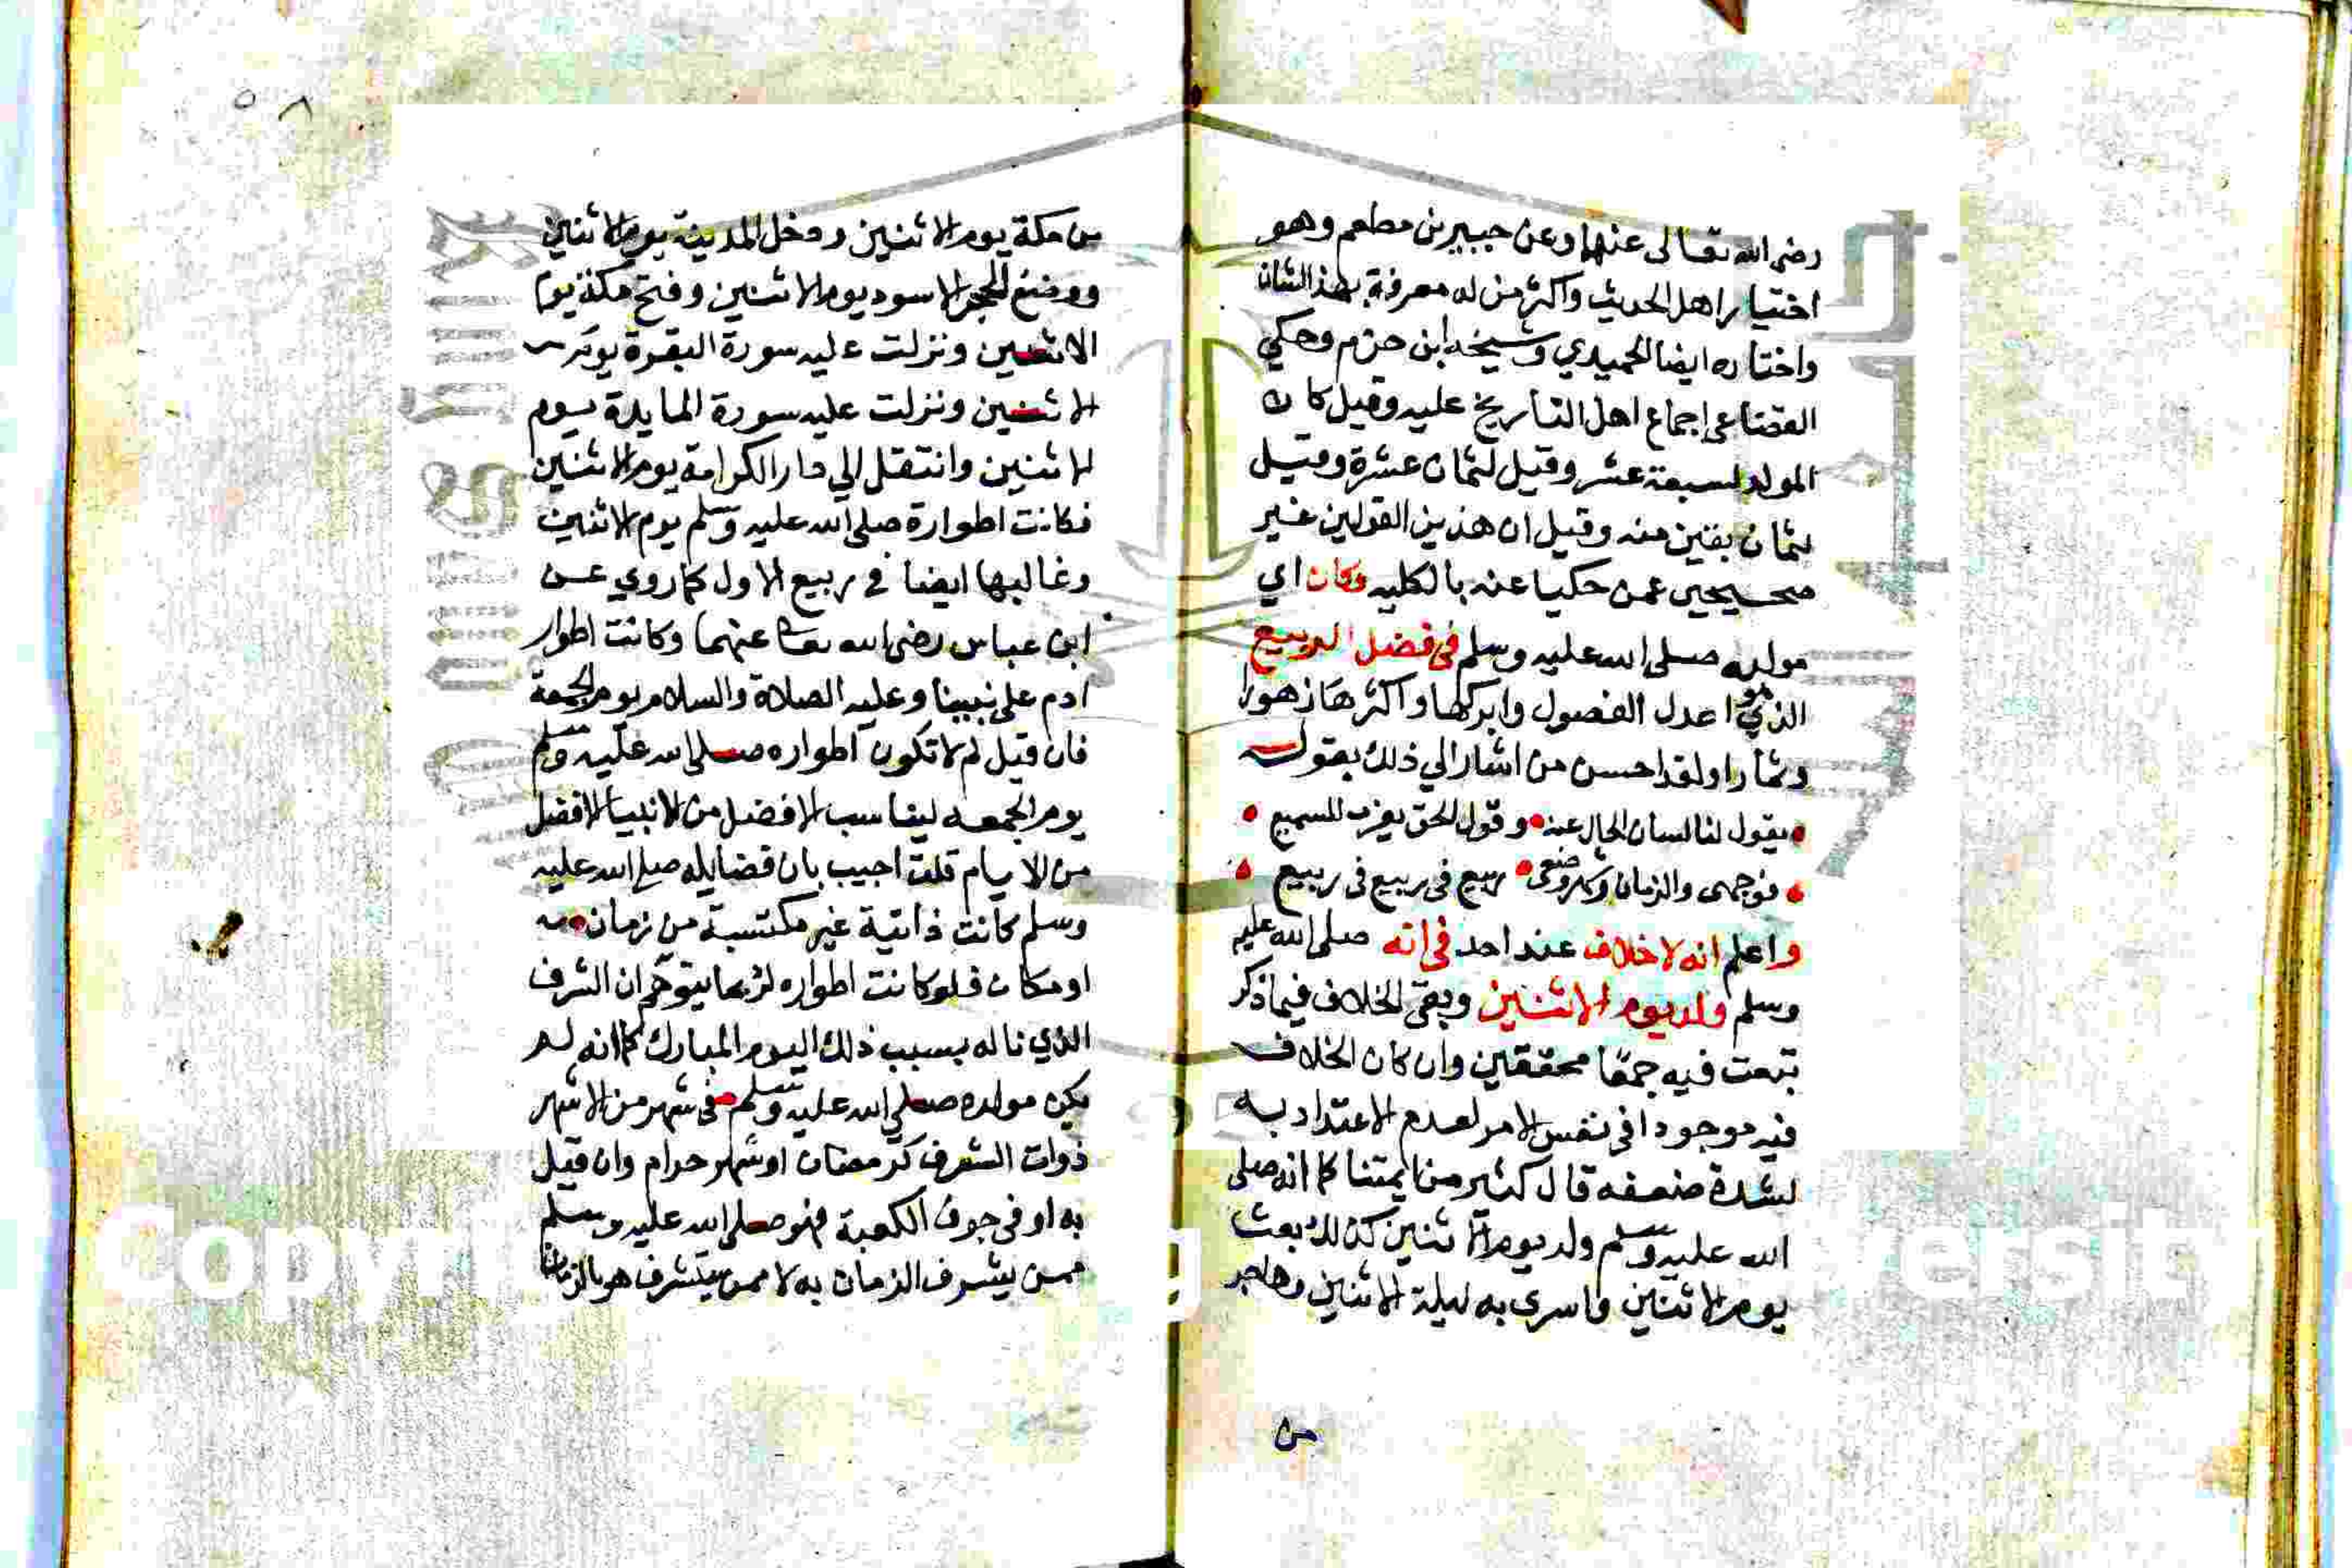 رضي الله تعالى عنهما وعن جبير بن مطعم وهو
اختيار اهل الحديث واكثر من له معرفة بهذا الشان
واختاره ايضا الحميدي وشيخه ابن حزم وحكي
القضاعي اجماع اهل التاريخ عليه وقيل كان
المولد لسبعة عشر وقيل لثمان عشرة وقيل
لثمان بقين منه وقيل ان هذين القولين غير
صحيحين عمن حكيا عنه بالكليه وكان اي
مولده صلى الله عليه وسلم في فصل الربيع
الذي هو اعدل الفصول وابركها واكثرها زهورا
وثمارا ولقد احسن من اشار الي ذلك بقوله
يقول لنا لسان الحال عنه وقول الحق يعذب للسميع
فوجهى والزمان وشهر وضعى ربيع في ربيع في ربيع
واعلم انه لا خلاف عند احد في انه صلى الله عليه
وسلم ولد يوم الاثنين وبقى الخلاف فيما ذكر
تبعت فيه جمعا محققين وان كان الخلاف
فيه موجودا في نفس الامر لعدم الاعتداد به
لشدة ضعفه قال كثير من ايمتنا كما انه صلى
الله عليه وسلم ولد يوم الاثنين كذلك بعث
يوم الاثنين واسرى به ليلة الاثنين وهاجر
من
٥٨
من مكة يوم الاثنين ودخل المدينة يوم الاثنين
ووضع الحجر الاسود يوم الاثنين وفتح مكة يوم
الاثنين ونزلت عليه سورة البقرة يوم
الاثنين ونزلت عليه سورة المايدة يوم
الاثنين وانتقل الي دار الكرامة يوم الاثنين
فكانت اطواره صلى الله عليه وسلم يوم الاثنين
وغالبها ايضا في ربيع الاول كما روي عن
ابن عباس رضي الله تعا عنهما وكانت اطوار
ادم على نبينا وعليه الصلاة والسلام يوم الجمعة
فان قيل لم لا تكون اطواره صلى الله عليه وسلم
يوم الجمعه ليناسب الافضل من الانبيا الافضل
من الايام قلت اجيب بان فضايله صلى الله عليه
وسلم كانت ذاتية غير مكتسبة من زمان
او مكان فلو كانت اطواره لربما يتوهم ان الشرف
الذي ناله بسبب ذلك اليوم المبارك كما انه لم
يكن مولده صلى الله عليه وسلم في شهر من الاشهر
ذوات الشرف كرمضان او شهر حرام وان قيل
به او في جوف الكعبة فهو صلى الله عليه وسلم
ممن يتشرف الزمان به لا ممن يتشرف هو بالزمان